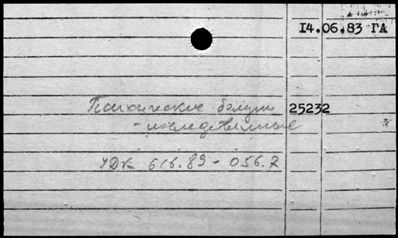 14.06.83 ГА
Психические болезни 25232
- наследственные
УДК 616.89-056.7